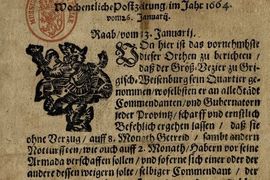 Wochentliche Postzeitung, im Jahr 1664.
vom 26. Januarij.
Raab/ vom 13. Januarij.
Von hier ist das vornehmste
dieser Orthen zu berichten/
daß der Groß-Vezier zu Gri-
gisch-Weisenburg sein Quartier ge-
nommen/woselbsten er an alle Städt
Commendanten/ und Gubernatorn
jeder Provintz/ scharff und ernstlich
Befehlich ergehen lassen/ daß sie
ohne Verzug/ auff 8. Monath Getreid/ sambt andern
Notturfften/ wie auch auff 2. Monath/ Habern vor seine
Armada verschaffen sollen/ und soferne sich einer oder der
andere dessen weigern solte/ selbiger Commendant/ der